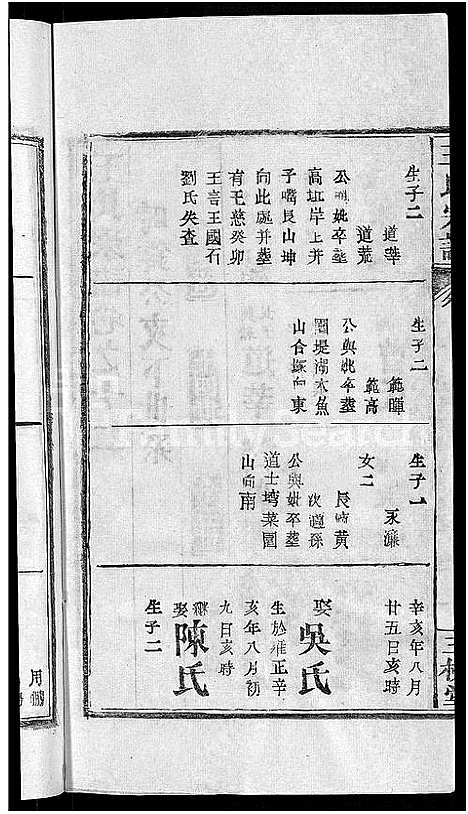 王氏宗譜
三槐堂
生子二
道華
道荒
公
妣卒葬
高坵岸上并
子嘴艮山坤
向此處并葬
有
慈癸卯
王言王國石
劉氏失查
生子二
範暉
範高
公與妣卒葬
堤湖木魚
山合塚向東
生子一
永濂
女二
長適黃
次適孫
公與妣卒葬
道士塆菜園
山向南
辛亥年八月
廿五日亥時
娶吳氏
生於雍正辛
亥年八月初
九日亥時
繼娶陳氏
生子二
用